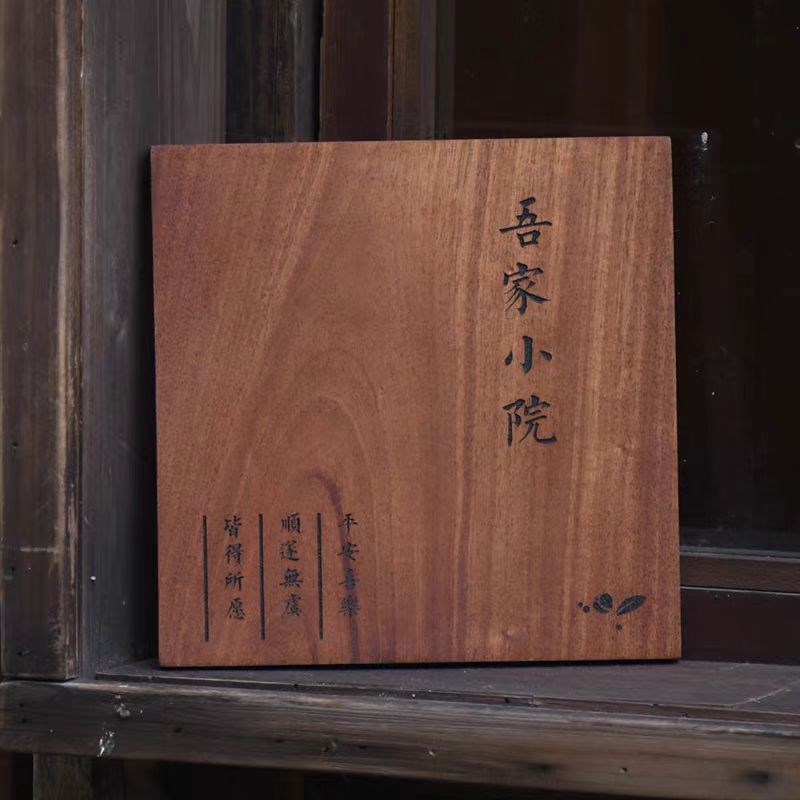 吾家小院
平安喜樂
順遂無虞
皆得所愿